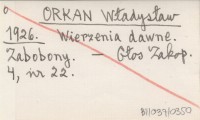 ORKAN Władysław
1926. Wierzenia dawne.
Zabobony. — Głos Zakop.
4, nr 22.
BI/037/0350